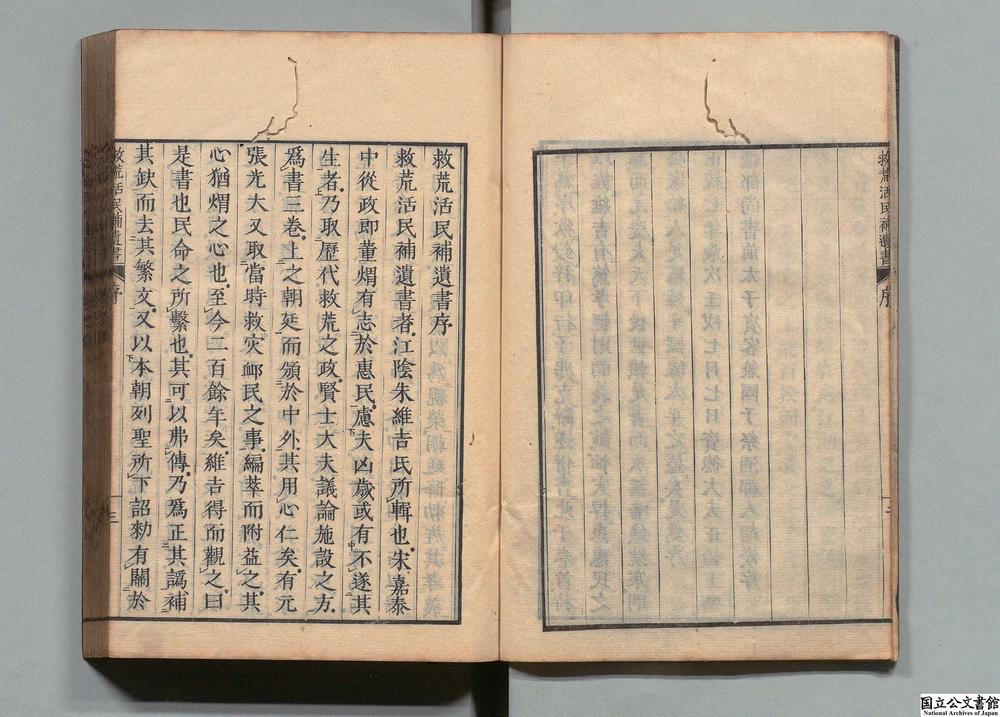 救荒活民補遺書 序
救荒活民補遺書序
救荒活民補遺書者江陰朱維吉氏所輯也宋嘉泰
中從政郎董煟有志於惠民慮夫凶歲或有不遂其
生者乃取歷代救荒之政賢士大夫議論施設之方
爲書三卷上之朝廷而頒於中外其用心仁矣有元
張光大又取當時救灾卹民之事編萃而附益之其
心猶煟之心也至今二百餘年矣維吉得而觀之曰
是書也民命之所繫也其可以弗傳乃爲正其譌補
其缺而去其繁文又以本朝列聖所下詔勑有關於
救荒活民補遺書 序 三
国立公文書館
National Archives of Japan